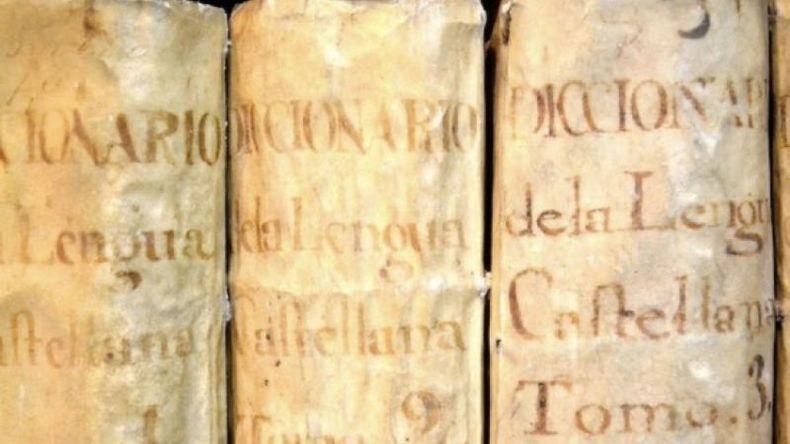 CIONARIO
Lengua
astellana
1
DICCIONARIO
dela Lengua
Castellana
Tomo 2
DICCIONARI
dela Lengu
Castellana
Tomo. 3.